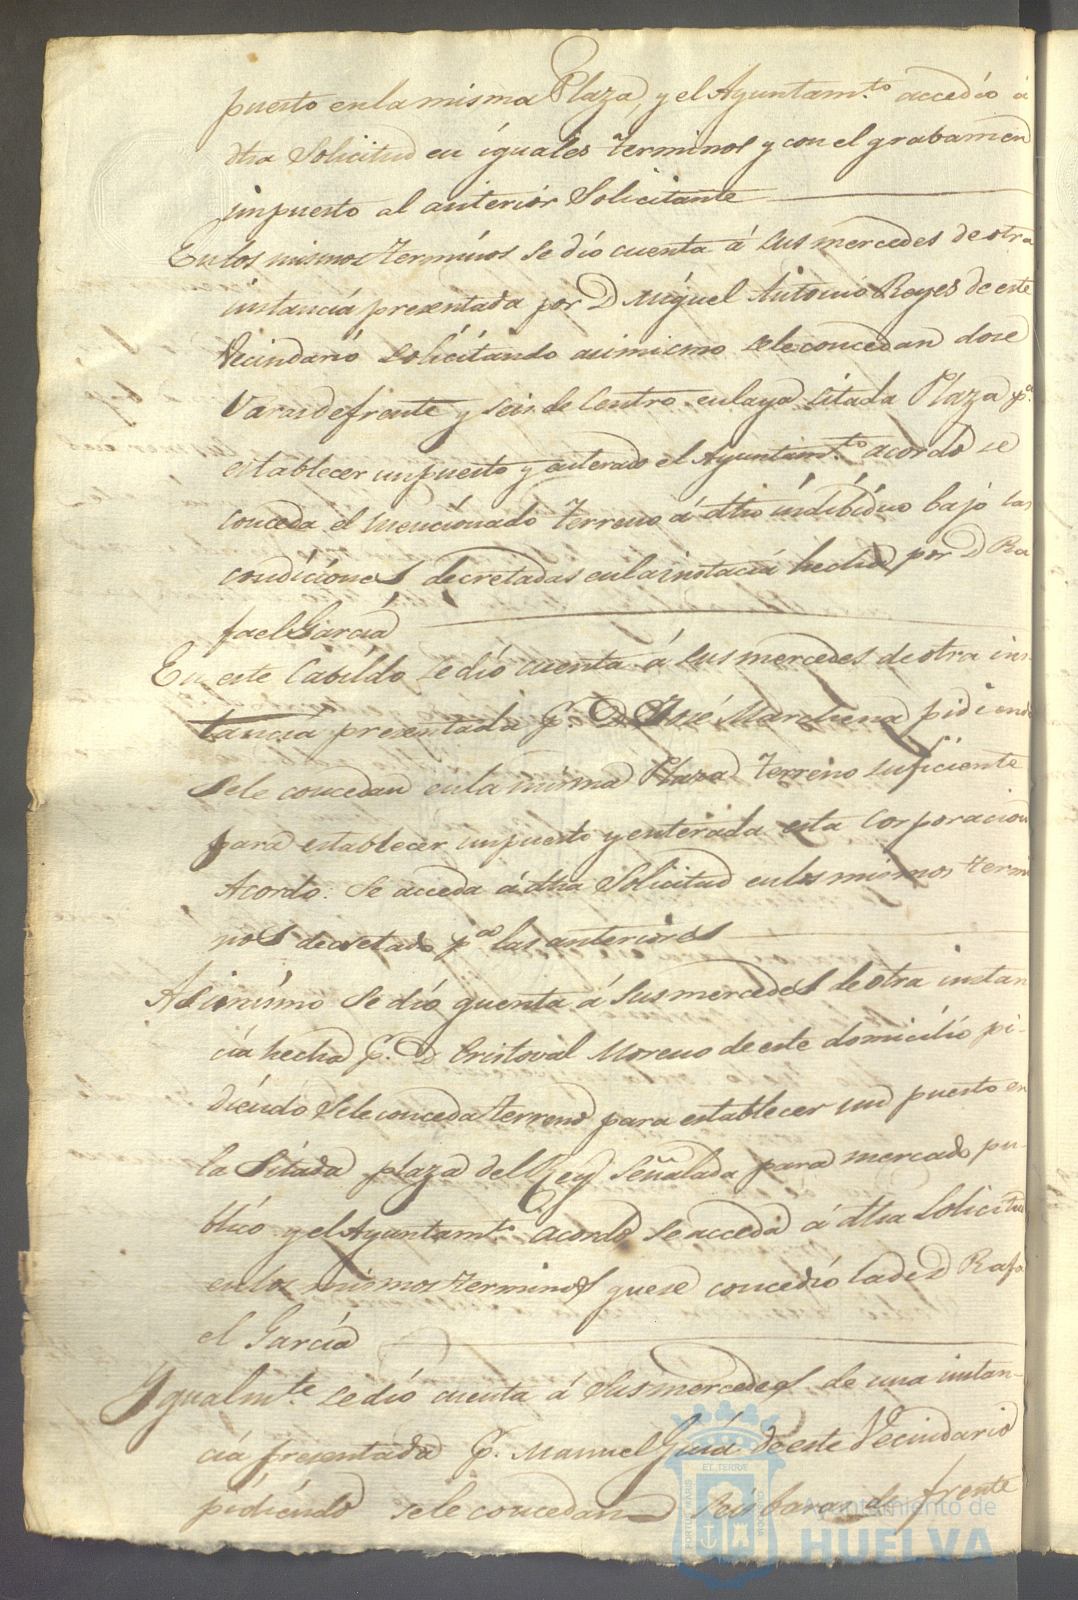 puesto en la misma Plaza, y el Ayuntamto. accedió á
dha Solicitud en íguales terminos y con el grabamen
impuesto al anteriór Solicitante
En los mismos terminos se dío cuenta á sus mercedes de otra
instancia presentada por D Miguel Antonio Reyes de este
Vecindario Solícitando asimismo se le concedan dose
Varas de frente y seis de Centro en la ya Citada Plaza pa.
establecer un puesto y enterado el Ayuntamto. acordó se
conceda el mencionado terreno á dho índibíduo bajo las
condiciones decretadas en la instacia hecha por D Ra
fael Garcia
En este Cabildo se dió cuenta á sus mercedes de otra ins
tancia presentada P. D José Marchena pidiendo
se le concedan en la misma Plaza terreno suficiente
para establecer un puesto y enterada esta Corporacion
Acordo: se acceda á dha Solicitud en los mismos termi
nos decretado pa las anteriores
Asimísmo se dío quenta á sus mercedes de otra instan
cia hecha P. D Cristoval Moreno de este domicilio pi-
diendo se le conceda terreno para establecer un puesto en
la Citada plaza del Rey Señalada para mercado pu-
blíco y el Ayuntamto. acordó se acceda á dha Solicitud
en los mismos terminos que se concedió la de D Rafa
el García
Ygualmte. se dío cuenta á sus mercedes de una instan-
cia presentada P. Manuel Guiá de este Vecindario
pidiéndo se le concedan Seis baras de frente
PORTUS MARIS
ET TERRAE
CUSTODIA
Ayuntamiento de
HUELVA